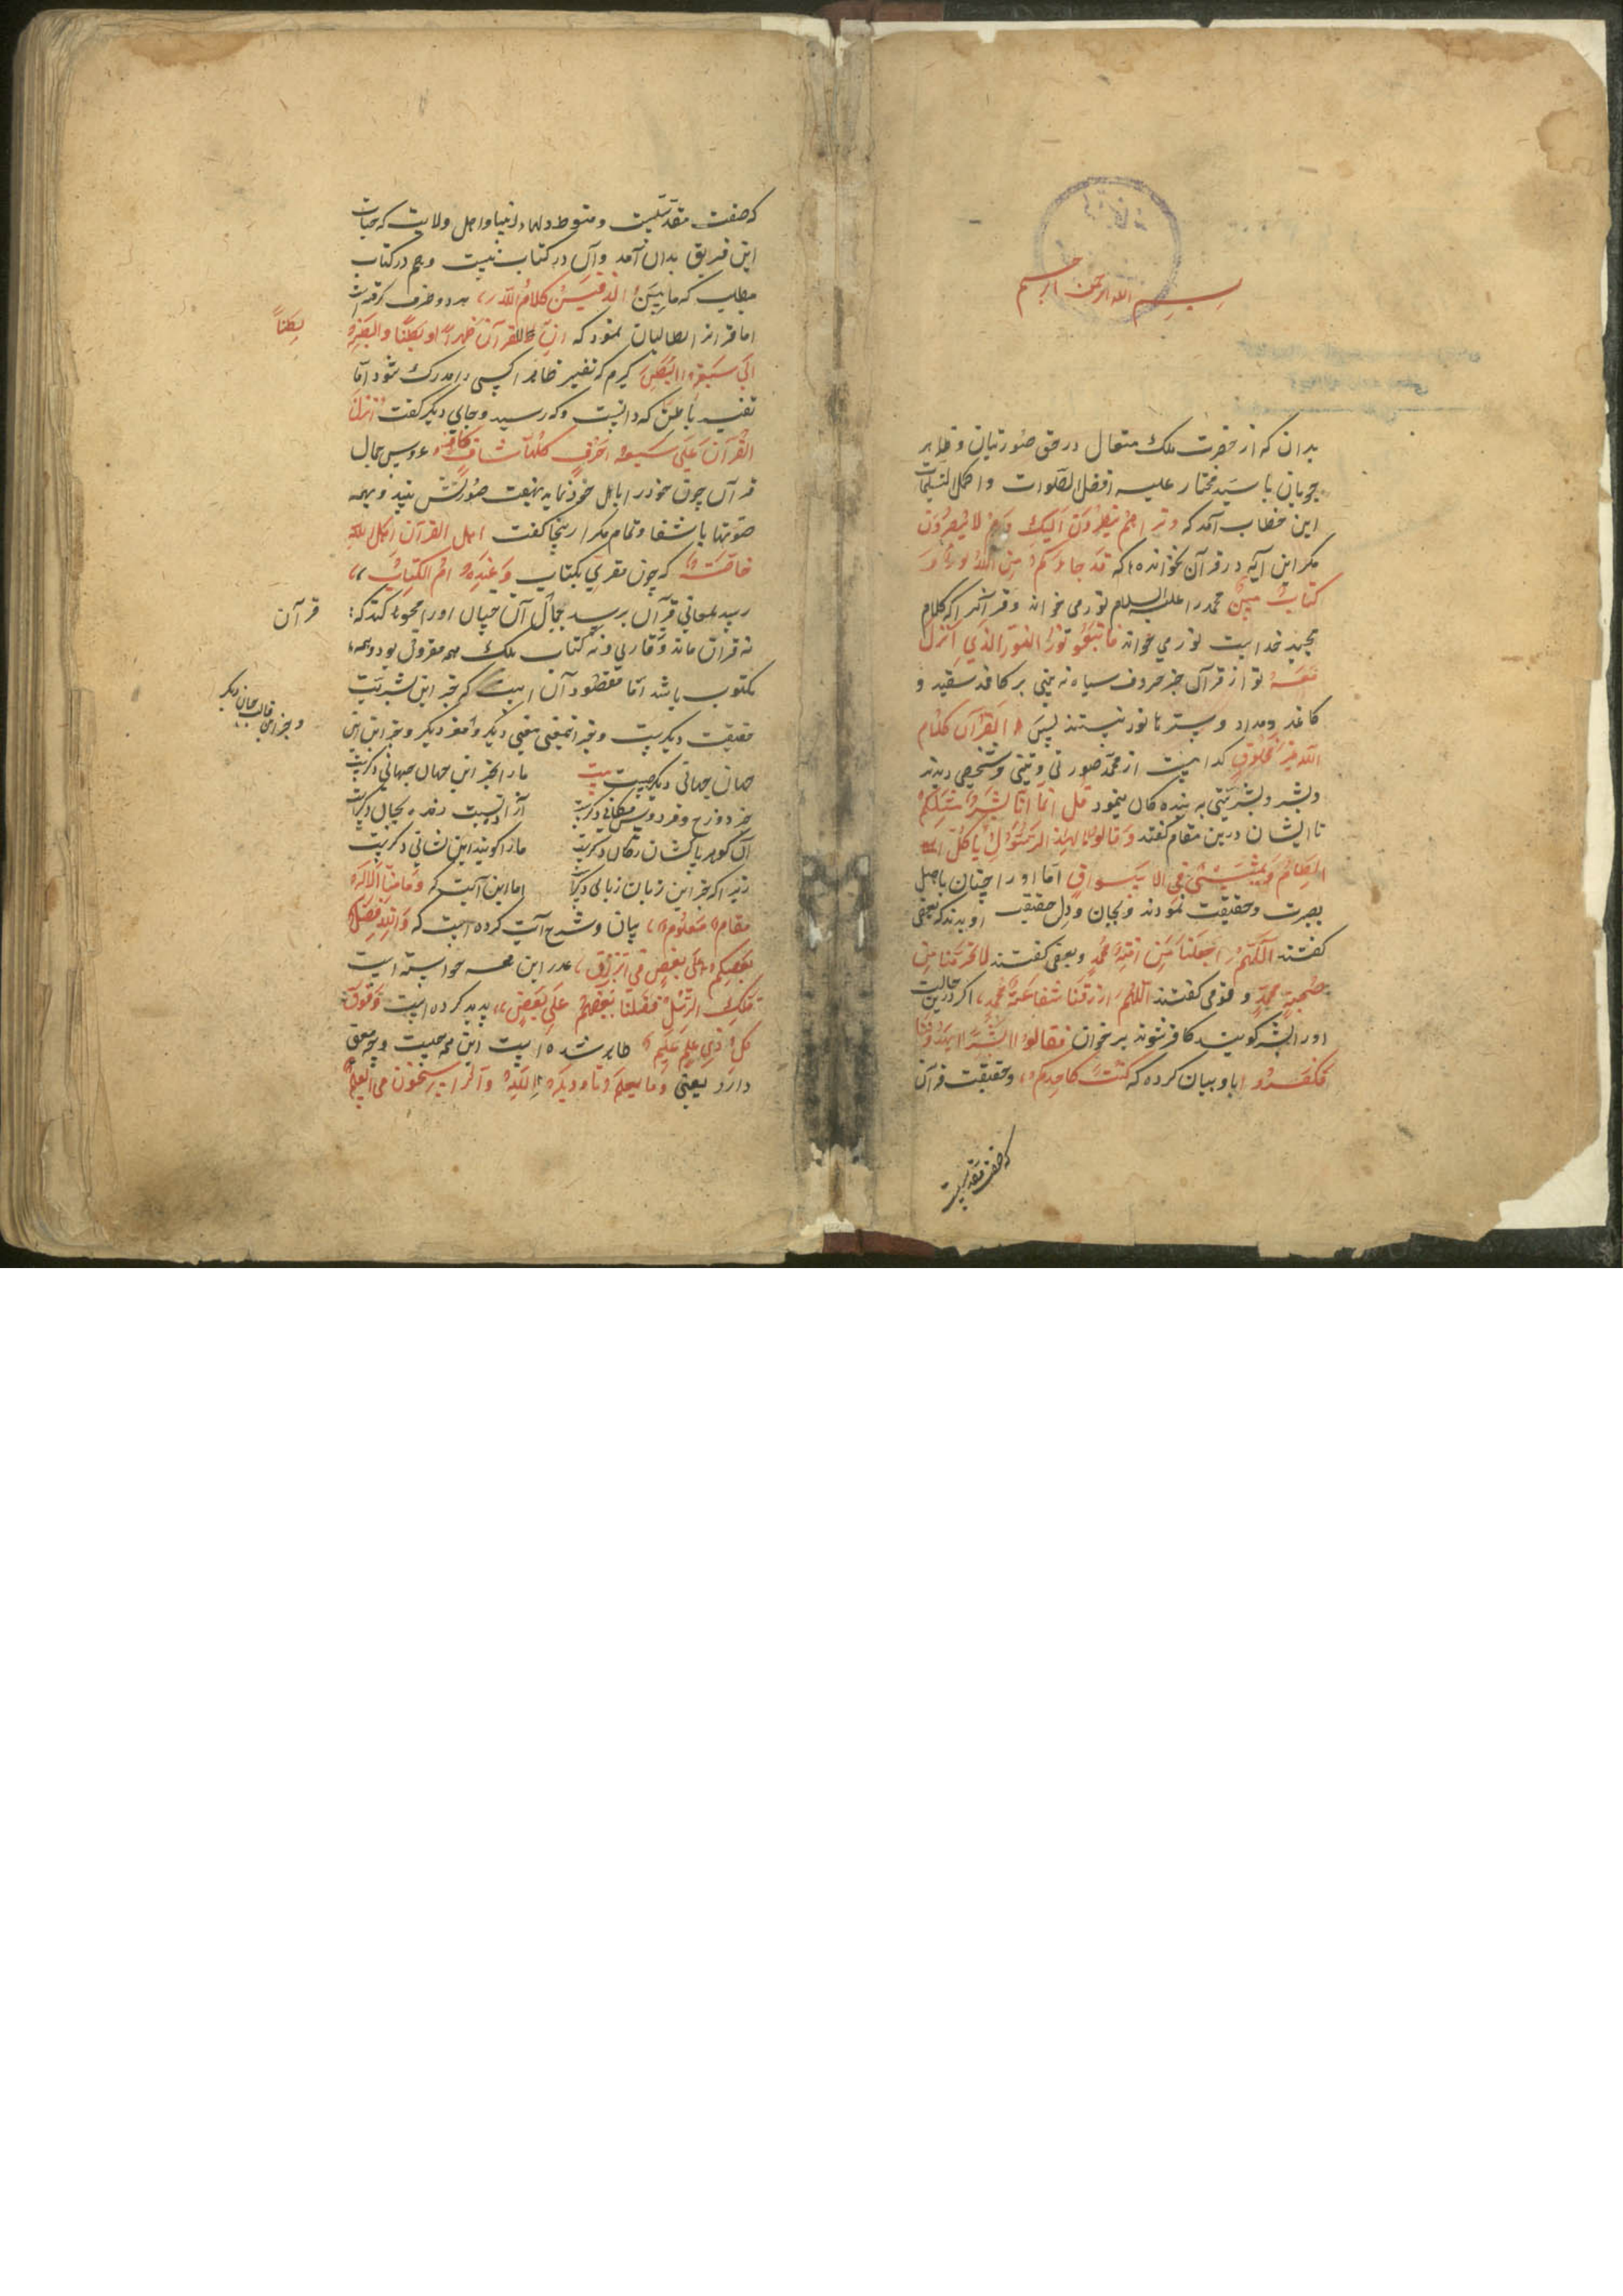 بسم الله الرحمن الرحیم
بدان که از حضرت ملک متعال در حق صورتیان و ظاهر
جویان با سید مختار علیه افضل الصلوات و اکمل التسلیمات
این خطاب آمد که وتراهم ینظرون الیک وهم لا یبصرون
مکر این آیه در قرآن نخوانده که قد جاءکم من الله نور و
کتاب مبین محمد را علیه السلام نور می خواند و قرآنرا که کلام
مجید خداست نور می خواند فاتبعو نور النور الذی انزل
معه تو از قرآن جز حروف سیاه نه بینی بر کاغذ سفید و
کاغذ و مداد و سترنا نور نیستند پس القرآن کلام
الله غیر مخلوق کدامست از محمد صورتی و تنی و شخصی دیدند
وبشر وبشریتی به بنده کان ینمود قل انما انا بشر مثلکم
تا ایشان درین مقام کفتند وقالوا ما لهذا الرسول یاکل
الطعام ویمشی فی الاسواق اما او را چنان باهل
بصرت وحقیقت نمودند وبجان ودل حقیقت او بدیدند بعضی
کفتند اللهم اجعلنا من امة محمد وبعضی کفتند لا تحرمنا من
صحبة محمد و قومی کفتند اللهم ارزقنا شفاعة محمد اکر درین حالت
اورا بشر کویند کافر شوند برخوان فقالوا ابشر یهدوننا
فکفروا با و بیان کرده که لست کاحدکم وحقیقت قرآن
که صفت مقدسیست
که صفت مقدسیست ومنوط دلهاء انبیا واهل ولایت که حیات
این فریق بدان آمد وآن در کتاب نیست وهم در کتاب
مطلب که ما بین الدفتین کلام الله هر دو طرف کرفته
اما قرآنرا طالبان نمود که ان للقرآن ظهرا وبطنا ولبطنه
بطنا
الی سبعة ابطن کیرم که تفسیر ظاهر را کسی مدرک شود اما
تفسیر باطن که دانست وکه رسید وجای دیکر کفت انزل
القرآن علی سبعة احرف کلها شاف کاف عروس جمال
قرآن چون خود را باهل خود نماید بهفت صورتش بینند وهمه
صورتها با شفا وتمام مکر از اینجا کفت اهل القرآن اهل الله
خاصته که چون مقری بکتاب وعنده ام الکتاب
رسد بمعانی قرآن برسد جمال آن چنان اورا محو کند که
قرآن
نه قرآن ماند وقاری ونه کتاب بلک همه مقروء بود وهمه
مکتوب باشد اما مقصود آن است که جز این بشریت
حقیقت دیکریست وجز این معنی معنی دیکر ومغز دیکر وجز این
وجز این قالب جان دیکر
جهان جهانی دیکرست بیت
ما را بجز این جهان جهانی دکرست
جز دوزخ وفردوس مکانی دکرست
آن کوهر پاکشان ز کان دکرست
ما را کویند این نشانی دکرست
زیرا که بجز این زبان زبانی دکرست
اما این آیت که وما منا الا له
مقام معلوم بیان وشرح آیت کرده است که والله فضل
بعضکم علی بعض فی الرزق عذر این همه خواسته است
تلک الرسل فضلنا بعضهم علی بعض پدید کرده است وفوق
کل ذی علم علیم ظاهر شده است این همه چیست وچه معنی
دارد یعنی وما یعلم تاویله الا الله والراسخون فی العلم